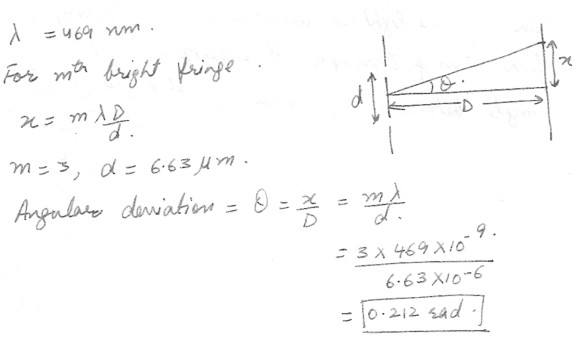 λ = 469 nm.
For mth bright fringe.
x = m λD/d.
m = 3, d = 6.63 μm.
Angular deviation = θ = x/D = mλ/d.
= 3 × 469 × 10^-9 / 6.63 × 10^-6
= 0.212 rad.
d
θ
D
x